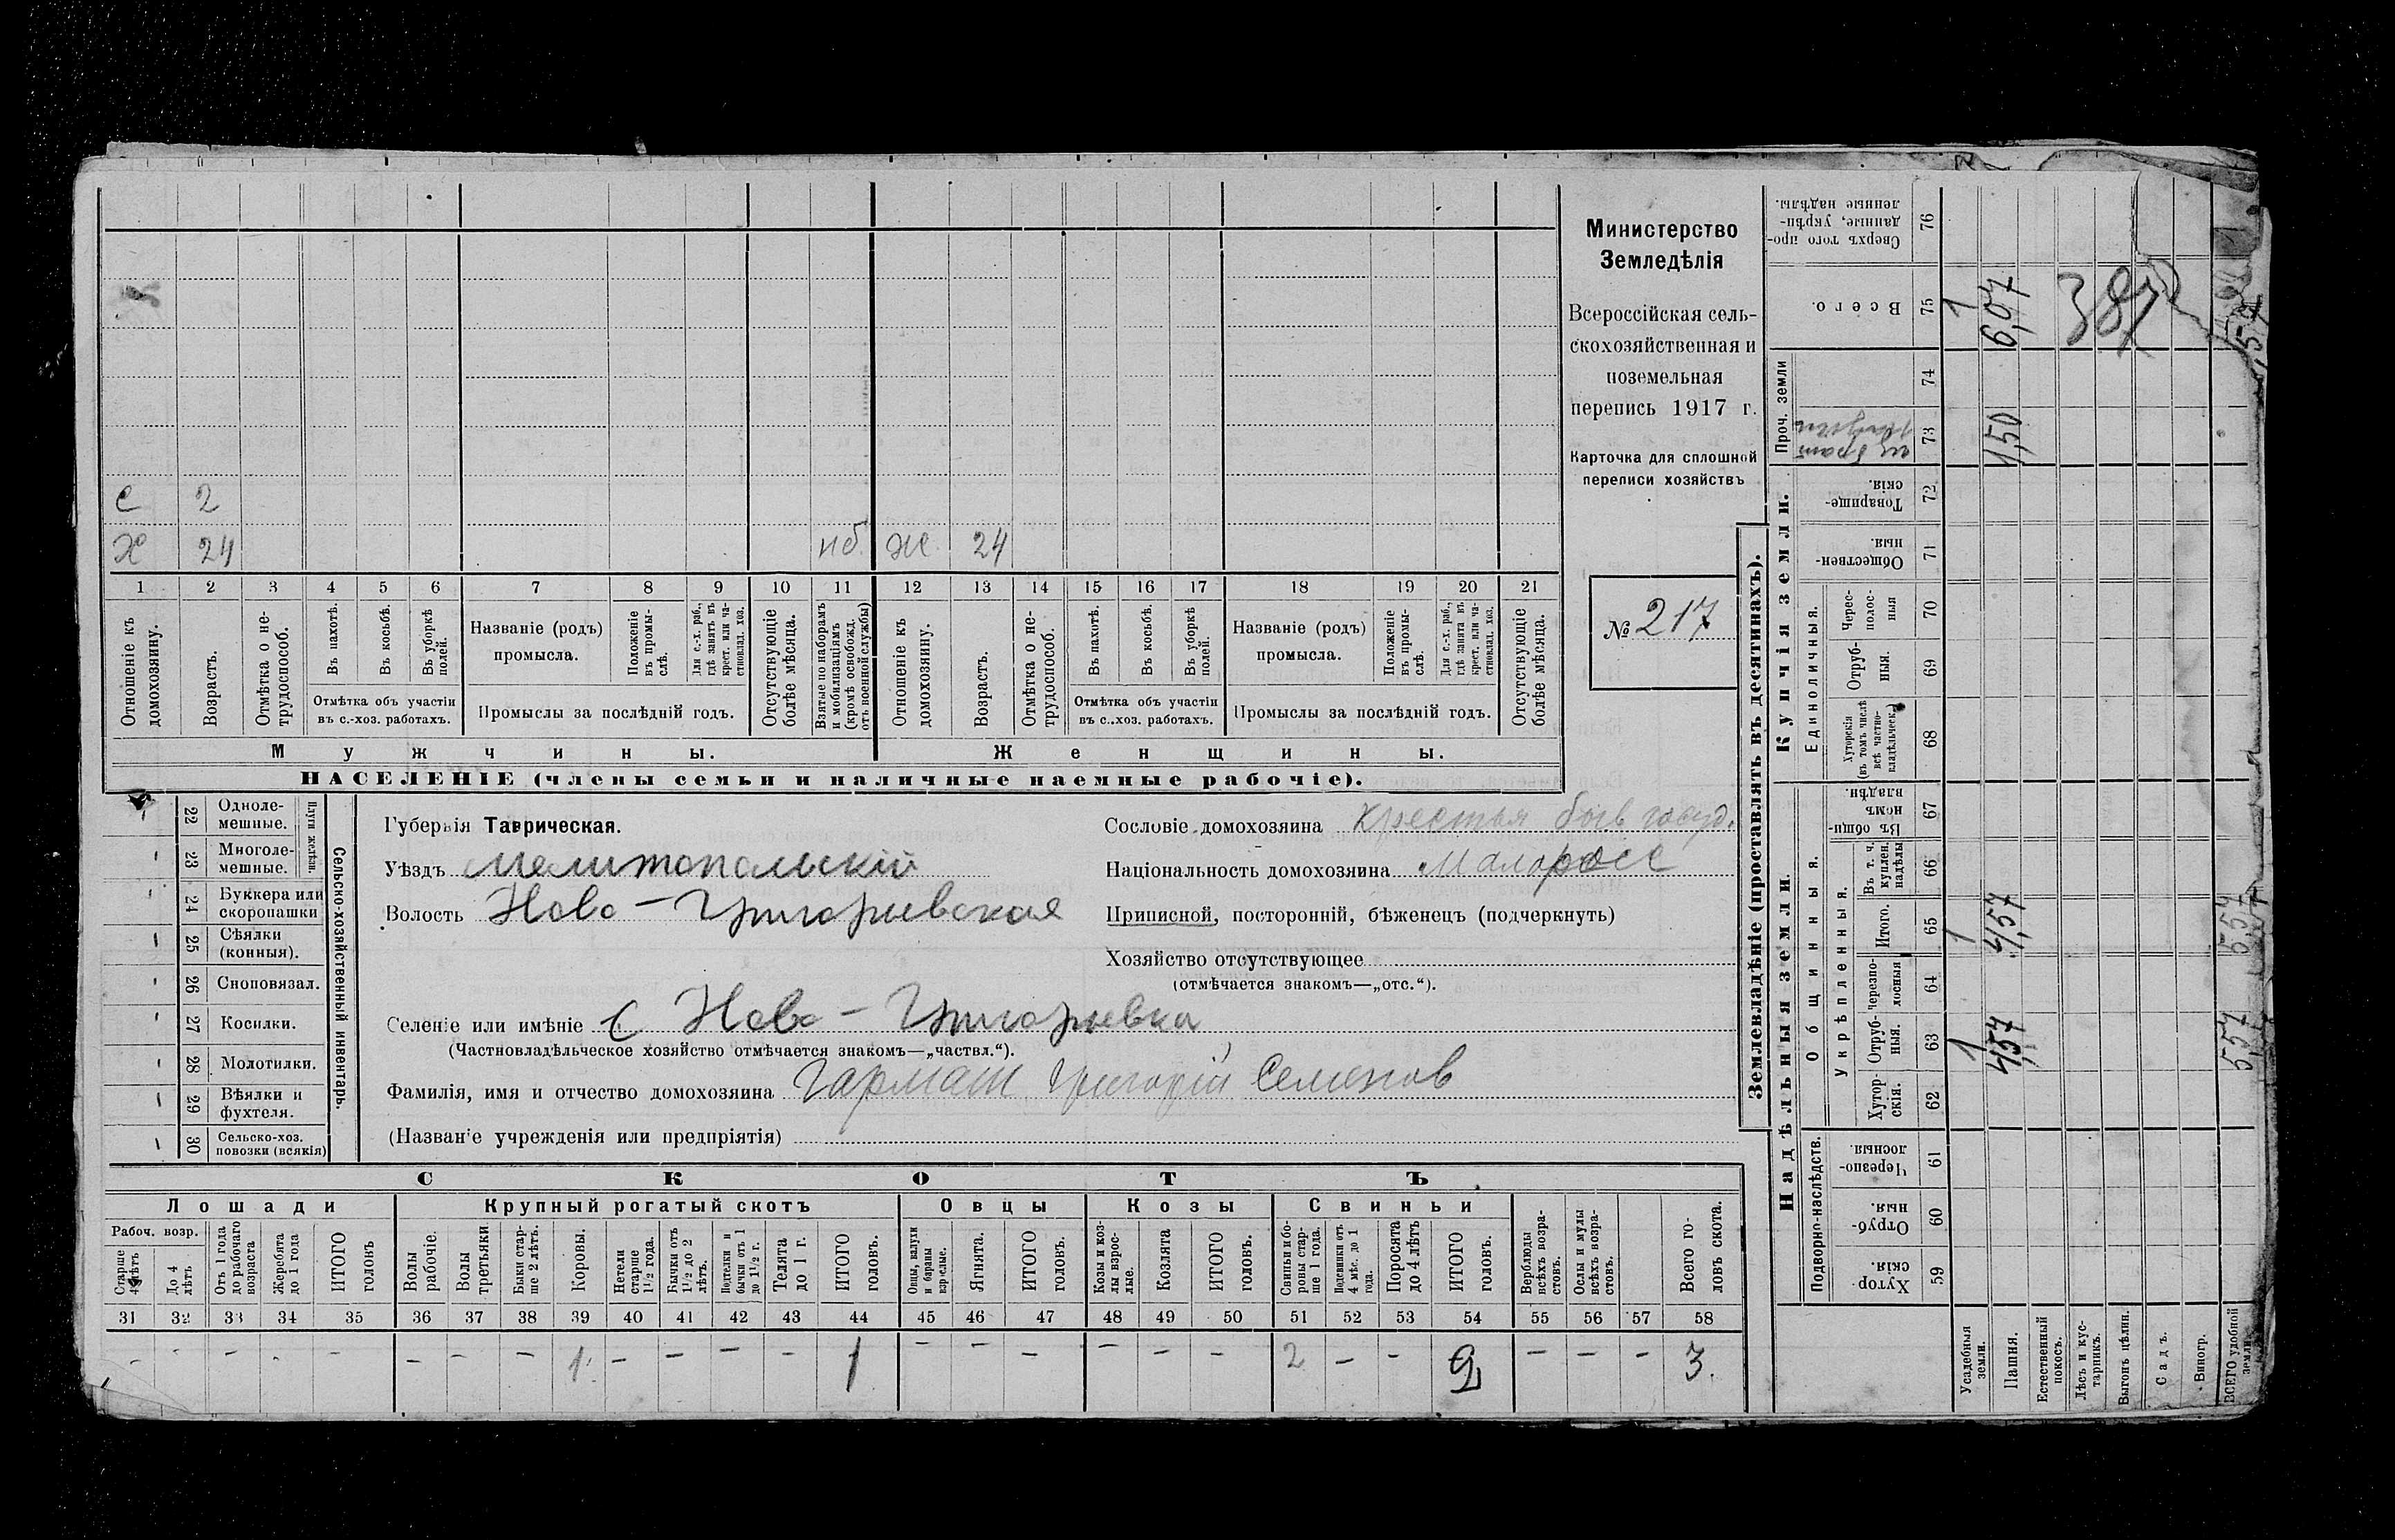 С 2
Х 24 нб. Ж 24
1 2 3 4 5 6 7 8 9 10 11 12 13 14 15 16 17 18 19 20 21
Отношеніе къ домохозяину.
Возрастъ.
Отмѣтка о нетрудоспособ.
Въ пахотѣ.
Въ косьбѣ.
Въ уборкѣ полей.
Отмѣтка объ участіи
въ с.-хоз. работахъ.
Названіе (родъ)
промысла.
Положеніе въ промыслѣ.
Для с.-х. раб., гдѣ занятъ въ крест. или частновлад. хоз.
Промыслы за послѣдній годъ.
Отсутствующіе болѣе мѣсяца.
Взятые по наборамъ и мобилизаціямъ (кромѣ освобожд. отъ военной службы)
Отношеніе къ домохозяину.
Возрастъ.
Отмѣтка о нетрудоспособ.
Въ пахотѣ.
Въ косьбѣ.
Въ уборкѣ полей.
Отмѣтка объ участіи
въ с.-хоз. работахъ.
Названіе (родъ)
промысла.
Положеніе въ промыслѣ.
Для с.-х. раб., гдѣ занята въ крест. или частновлад. хоз.
Промыслы за послѣдній годъ.
Отсутствующіе болѣе мѣсяца.
Мужчины. Женщины.
НАСЕЛЕНІЕ (члены семьи и наличные наемные рабочіе).
Министерство
Земледѣлія
Всероссійская сель-
скохозяйственная и
поземельная
перепись 1917 г.
Карточка для сплошной
переписи хозяйствъ
№ 217
Сельско-хозяйственный инвентарь.
Плуги желѣзн.
22 Одноле-
мешные.
23 Многоле-
мешные.
24 Буккера или
скоропашки
25 Сѣялки
(конныя).
26 Сноповязал.
27 Косилки.
28 Молотилки.
29 Вѣялки и
фухтеля.
30 Сельско-хоз.
повозки (всякія)
Губернія Таврическая.
Уѣздъ Мелитопольскій
Волость Ново-Григорьевская
Селеніе или имѣніе с Ново-Григорьевка
(Частновладѣльческое хозяйство отмѣчается знакомъ—„частвл.“).
Фамилія, имя и отчество домохозяина Гармаш Григорій Семенов
(Названіе учрежденія или предпріятія)
Сословіе домохозяина Крестья быв госуд.
Національность домохозяина Малоросс
Приписной, посторонній, бѣженецъ (подчеркнуть)
Хозяйство отсутствующее
(отмѣчается знакомъ—„отс.“).
СКОТЪ
Лошади Крупный рогатый скотъ Овцы Козы Свиньи
Рабоч. возр.
Старше 4 лѣтъ
До 4 лѣтъ
Отъ 1 года до рабочаго возраста
Жеребята до 1 года
ИТОГО головъ
Волы рабочіе.
Волы третьяки
Быки старше 2 лѣтъ.
Коровы.
Нетели старше 1½ года.
Бычки отъ 1½ до 2 лѣтъ.
Подтелки и бычки отъ 1 до 1½ г.
Телята до 1 г.
ИТОГО головъ.
Овцы, валухи и бараны взрслые.
Ягнята.
ИТОГО головъ.
Козы и козлы взрослые.
Козлята
ИТОГО головъ.
Свиньи и боровы старше 1 года.
Подсвинки отъ 4 мѣс. до 1 года.
Поросята до 4 лѣтъ
ИТОГО головъ.
Верблюды всѣхъ возрастовъ.
Ослы и мулы всѣхъ возрастовъ.
Всего головъ скота.
31 32 33 34 35 36 37 38 39 40 41 42 43 44 45 46 47 48 49 50 51 52 53 54 55 56 57 58
- - - - - - - - 1 - - - - 1 - - - - - - 2 - - 2 - - - 3.
Землевладѣніе (проставлять въ десятинахъ).
Надѣльныя земли. Купчія земли.
Проч. земли
Подворно-наслѣдств.
Общинныя.
Укрѣпленныя.
Единоличныя.
Хуторскія. 59
Отрубныя. 60
Черезполосныя 61
Хуторскія. 62
Отрубныя. 63
Черезполосныя 64
Итого. 65
Въ т. ч. куплен. надѣлы 66
Въ общинномъ владѣн. 67
Хуторскія (въ томъ числѣ всѣ частновладѣльческ.) 68
Отрубныя. 69
Чересполосныя 70
Общественныя. 71
Товарищескія. 72
73
74
Всего. 75
Сверхъ того проданные, укрѣпленные надѣлы. 76
Усадебныя земли. 1 1 1
Пашня. 4,57 4,57 1,50 6,07
Естественный покосъ.
Лѣсъ и кустарникъ.
Выгонъ цѣлин.
Садъ.
Виногр.
ВСЕГО удобной земли. 5,57 5,57
387